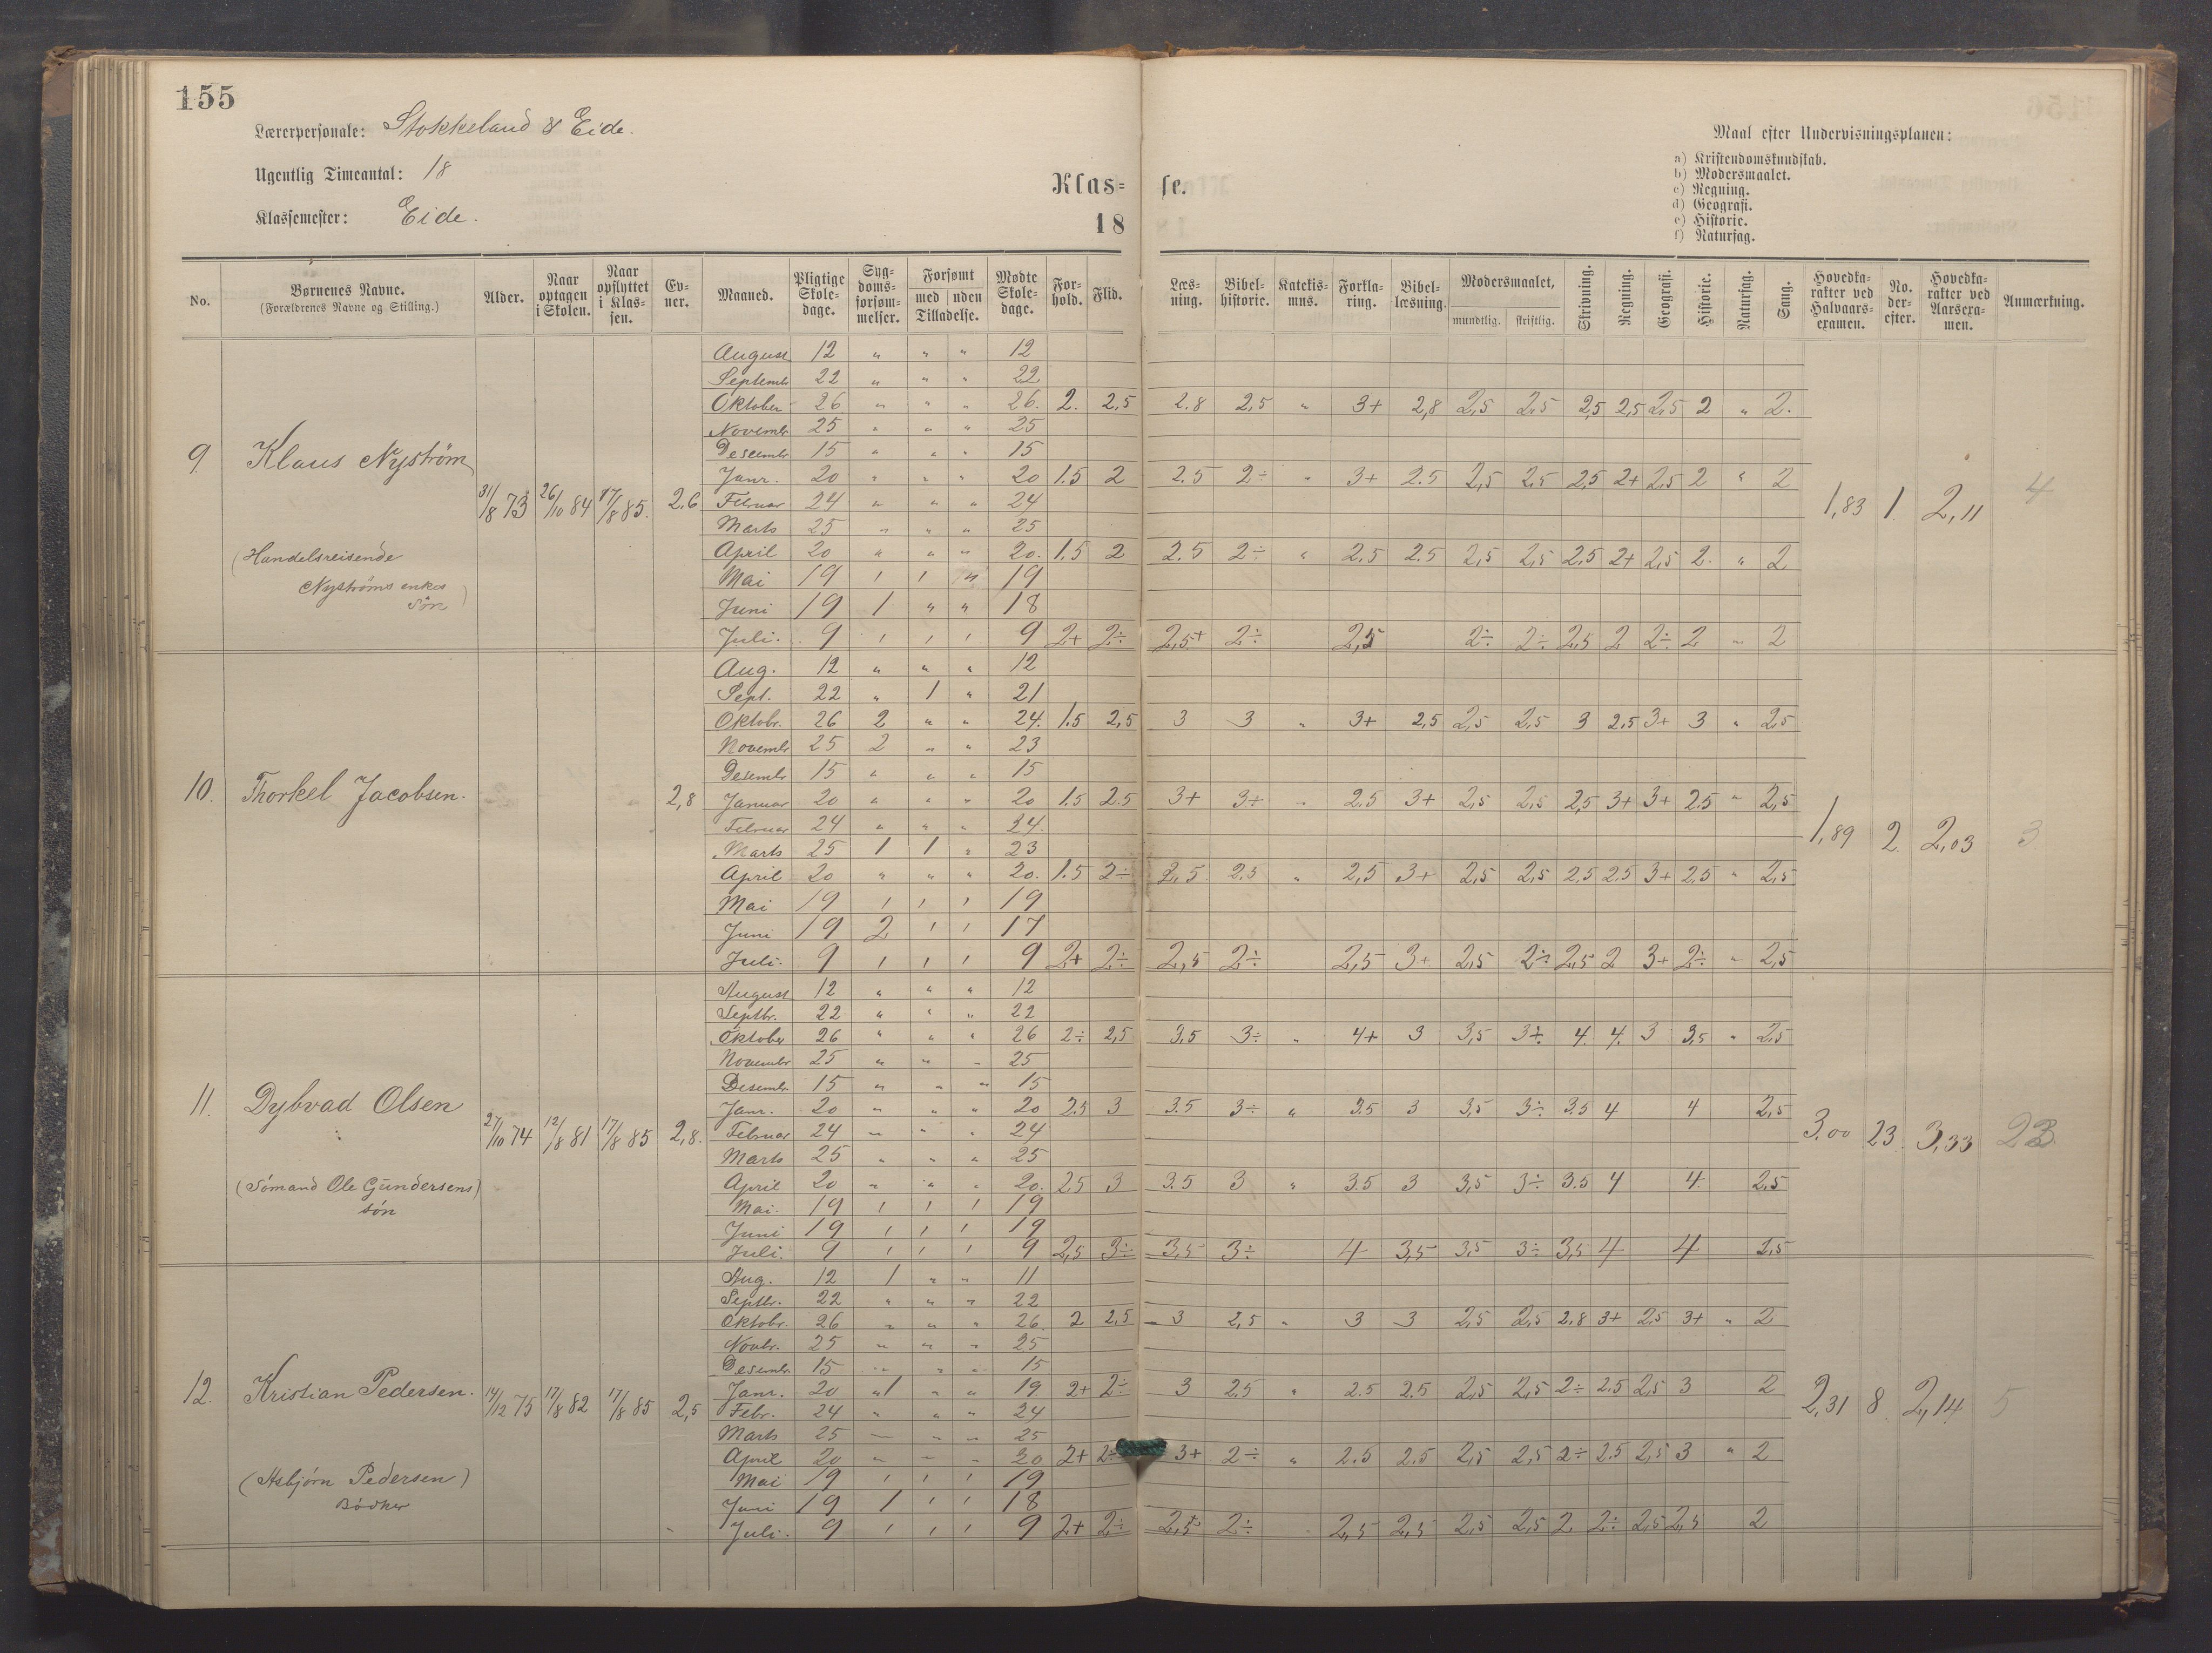 155
Lærerpersonale: Stokkeland & Eide.
Ugentlig Timeantal: 18
Klassemester: Eide.
Klas= se.
18
Maal efter Undervisningsplanen:
a) Kristendomskundskab.
b) Modersmaalet.
c) Regning.
d) Geografi.
e) Historie.
f) Naturfag.
No. Børnenes Navne. (Forældrenes Navne og Stilling.) Alder. Naar optagen i Skolen. Naar opflyttet i Klassen. Evner. Maaned. Pligtige Skoledage. Sygdomsforsømmelser. Forsømt med uden Tilladelse. Mødte Skoledage. Forhold. Flid. Læsning. Bibelhistorie. Katekismus. Forklaring. Bibellæsning. Modersmaalet, mundtlig. skriftlig. Skrivning. Regning. Geografi. Historie. Naturfag. Sang. Hovedkarakter ved Halvaarsexamen. No. derefter. Hovedkarakter ved Aarsexamen. Anmærkning.
9. Klaus Nyström
(Handelsreisende Nyströms enkes Sön)
31/8 73 26/10 84 17/8 85. 2,6 1,83 1. 2,11 4
August 12 " " " 12
Septembr 22 " " " 22
Oktober 26 " " " 26. 2. 2,5 2.8 2,5 " 3+ 2,8 2,5 2,5 2,5 2,5 2,5 2 " 2.
Novembr 25 " " " 25
Descembr 15 " " " 15
Janr. 20 " " " 20 1.5 2 2.5 2÷ " 3+ 2.5 2,5 2,5 2,5 2+ 2,5 2 " 2
Februar 24 " " " 24
Marts 25 " " " 25
April 20 " " " 20. 1.5 2 2.5 2÷ " 2.5 2.5 2,5 2,5 2.5 2+ 2,5 2. " 2
Mai 19 ' ' " 19
Juni 19 1 " " 18
Juli. 9 ' ' ' 9 2+ 2÷ 2,5+ 2÷ 2,5 2÷ 2÷ 2,5 2 2÷ 2 " 2
10. Thorkel Jacobsen.
2,8 1,89 2. 2,03 3
Aug. 12 " " " 12
Sept. 22 " 1 " 21
Oktobr. 26 2 " " 24. 1.5 2,5 3 3 " 3+ 2,5 2,5 2,5 3 2.5 3+ 3 " 2,5
Novembr 25 2 " " 23
Desembr 15 " " " 15
Januar 20 " " " 20 1.5 2.5 3+ 3+ " 2.5 3+ 2,5 2,5 2,5 3+ 3+ 2.5 " 2,5
Februar 24 " " " 24.
Marts 25 1 1 " 23
April 20 " " " 20. 1.5 2÷ 2,5 2.5 " 2,5 3+ 2,5 2,5 2.5 2.5 3+ 2.5 " 2,5
Mai 19 ' ' ' 19
Juni 19 2 ' ' 17
Juli. 9 ' ' ' 9 2+ 2÷ 2,5 2÷ 2,5 3+ 2,5 2÷ 2,5 2 3+ 2÷ " 2,5
11. Dybvad Olsen
(Sømand Ole Gundersens søn
27/10 74 12/8 81 17/8 85 2,8. 3,00 23 3,33 23
August 12 " " " 12
Septbr. 22 " " " 22
Oktober 26 " " " 26 2÷ 2,5 3.5 3÷ " 4+ 3 3,5 3÷ 4. 4. 3 3,5 " 2,5
Novembr 25 " " " 25
Desembr. 15 " " " 15
Janr. 20 " " " 20 2.5 3 3.5 3÷ " 3.5 3 3,5 3÷ 3.5 4 4 2,5
Februar 24 " " " 24
Marts 25 " " " 25
April 20 " " " 20. 2.5 3 3.5 3 " 3.5 3 3,5 3÷ 3.5 4 4. 2,5
Mai. 19 ' ' ' 19
Juni 19 ' ' ' 19
Juli. 9 ' ' ' 9 2,5 3÷ 3,5 3÷ 4 3,5 3,5 3÷ 3,5 4 4 2,5
12. Kristian Pedersen.
(Asbjørn Pedersen) Bødker
14/12 75 17/8 82 17/8 85 2,5 2,31 8 2,14 5
Aug. 12 1 " " 11
Septbr. 22 " " " 22
Oktobr. 26 " " " 26. 2 2,5 3 2,5 " 3 3 2,5 2,5 2.8 3+ 2.5 3+ " 2
Novbr. 25 " " " 25
Desembr. 15 " " " 15
Janr. 20 "1 " " 19. 2+ 2÷ 3 2.5 " 2.5 2.5 2,5 2,5 2÷ 2.5 2,5 3 2
Febr. 24 " " " 24
Marts 25 " " " 25
April 20 " " " 20 2+ 2÷ 3+ 2÷ " 2.5 2.5 2,5 2,5 2÷ 2.5 2,5 3 " 2
Mai 19 ' ' ' 19
Juni 19 1 ' ' 18
Juli. 9 ' ' ' 9 2+ 2÷ 2,5+ 2÷ 2,5 2,5 2,5 2,5 2 2÷ 2,5 2,5 2